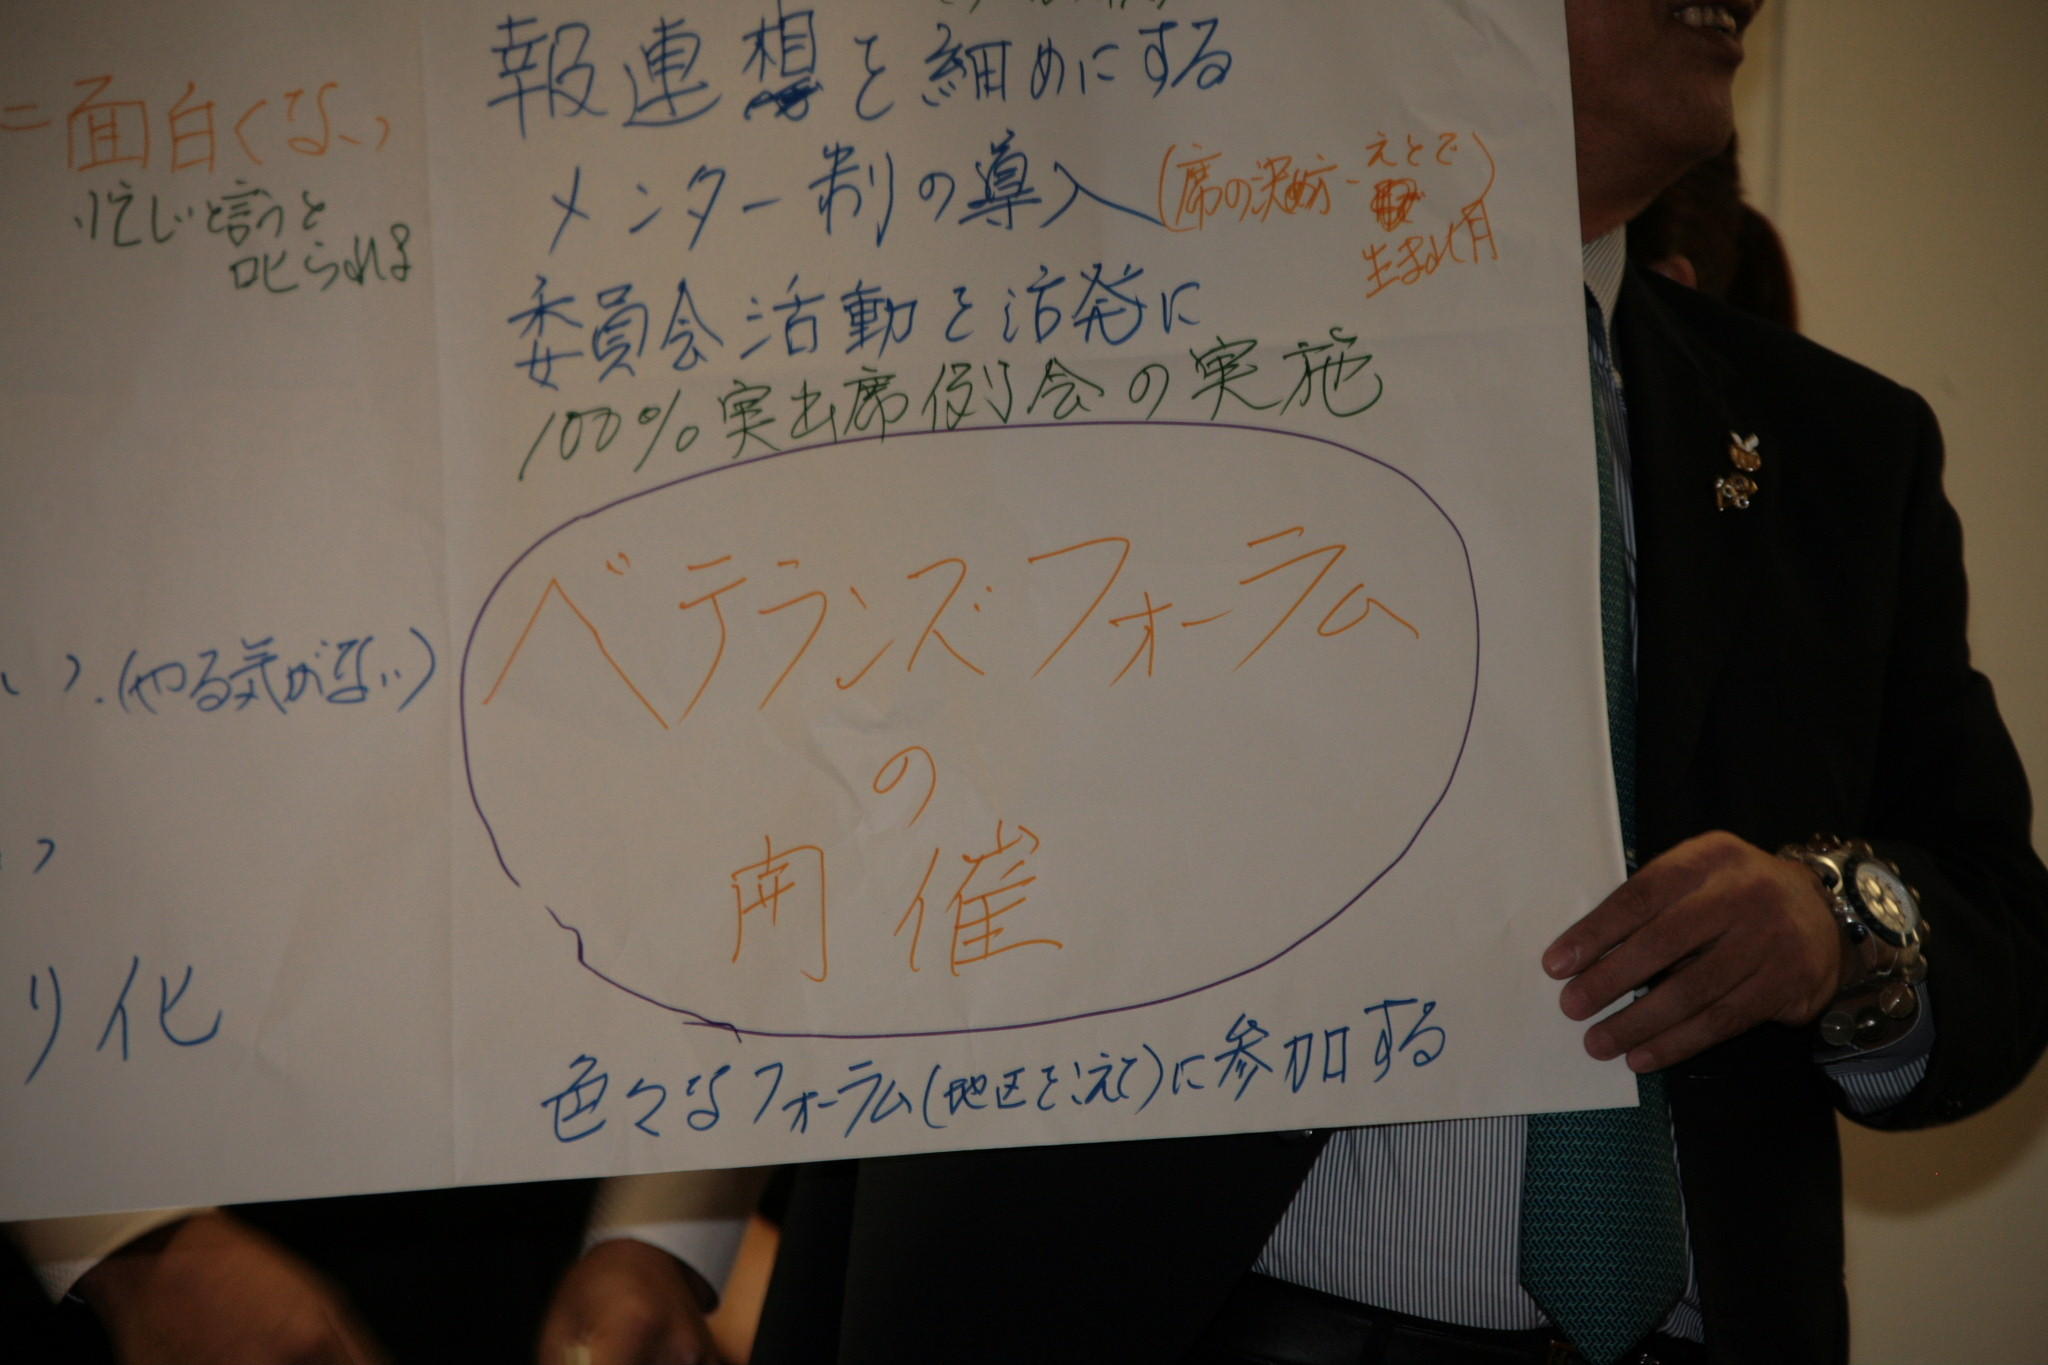 =面白くない
忙しいと言うと
叱られる
(やる気がない)
リ化
報連想を細めにする
メンター制の導入(席の決め方-えとで
生まれ月)
委員会活動を活発に
100%実出席例会の実施
ベテランズフォーラム
の
開催
色々なフォーラム(地区を越えて)に参加する